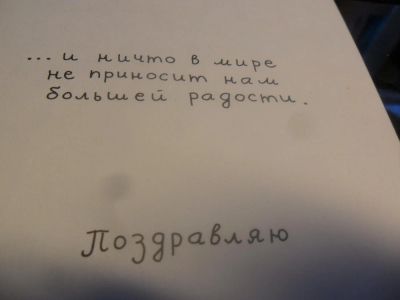 ... и ничто в мире
не приносит нам
большей радости.
Поздравляю